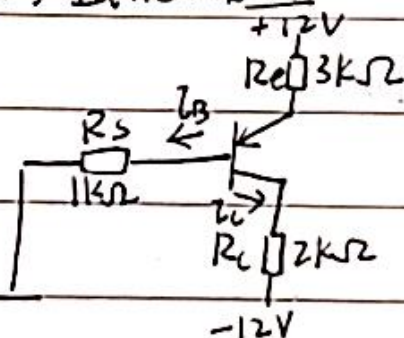 +12V
Re 3KΩ
iB
Rs
1KΩ
ic
Rc 2KΩ
-12V